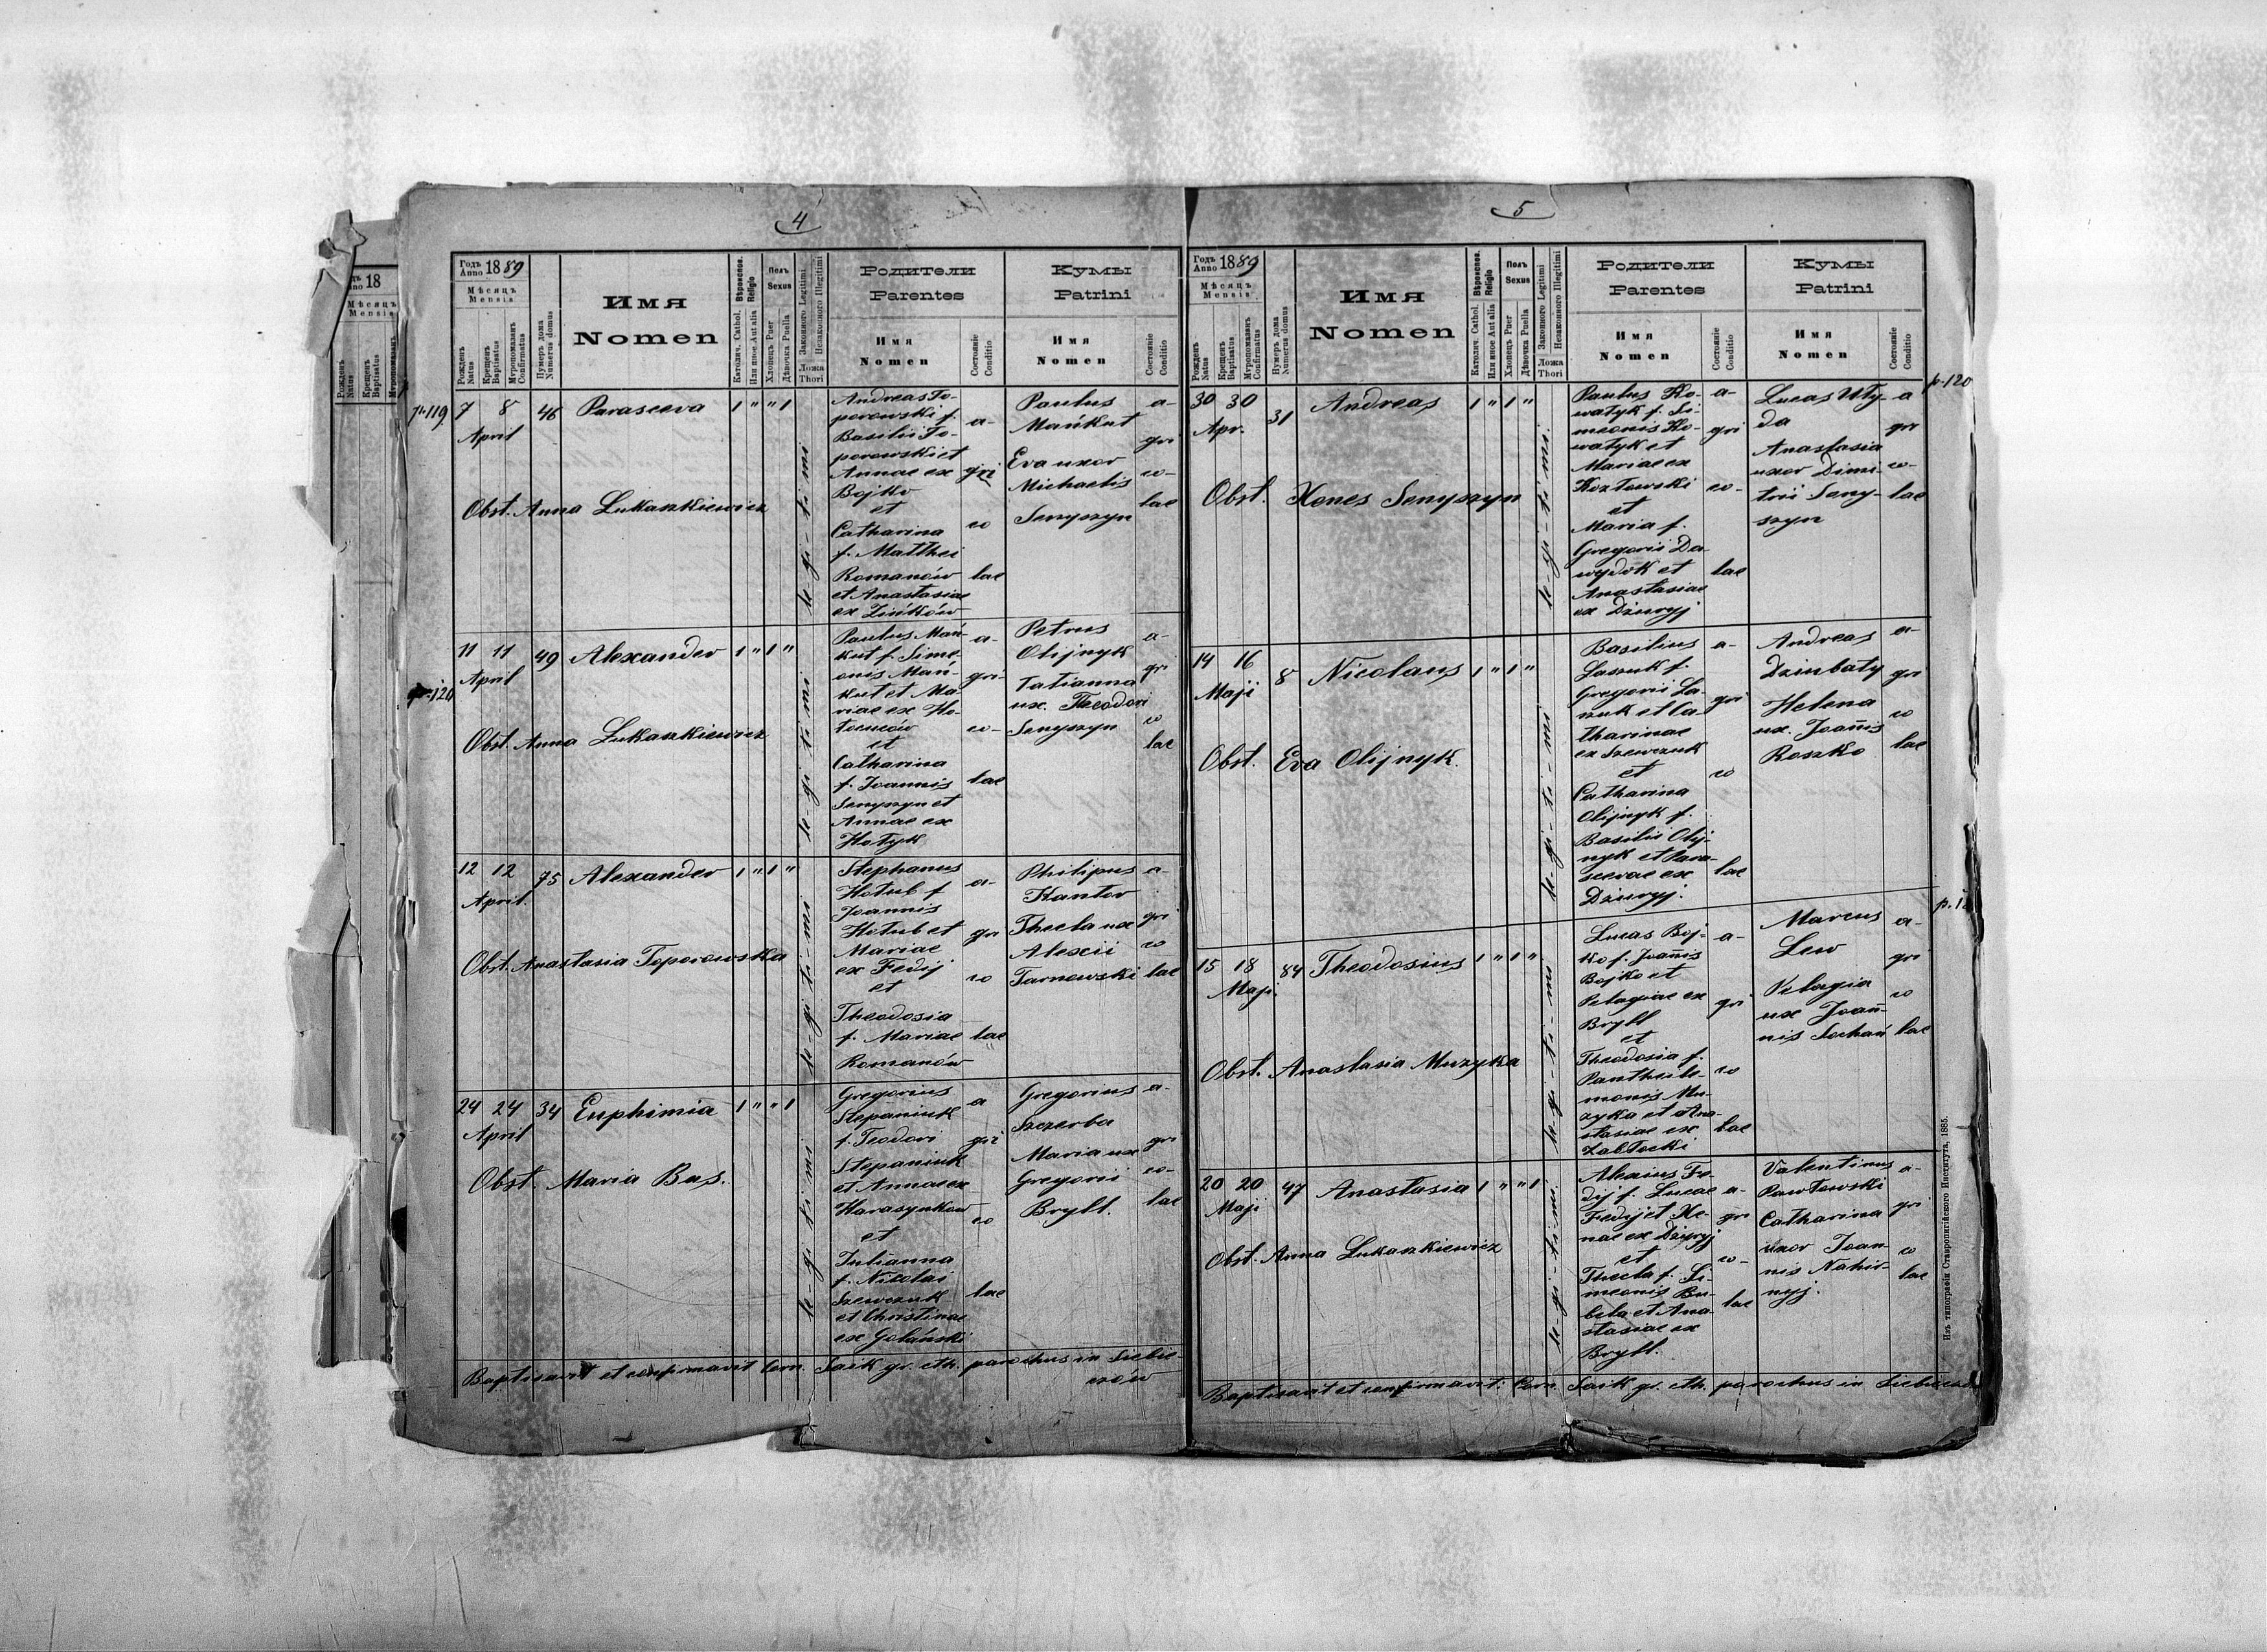 4
Годъ Anno 1889
Мѣсяцъ
Mensis
Рожденъ Natus
Крещенъ Baptisatus
Мѵропомазанъ Confirmatus
Нумеръ дома Numerus domus
Имя
Nomen
Вѣроиспов. Religio
Католич. Cathol.
Или иное Aut alia
Полъ Sexus
Хлопецъ Puer
Дѣвочка Puella
Законного Legitimi
Незаконного Illegitimi
Ложа
Thori
Родители
Parentes
Имя
Nomen
Состояніе
Conditio
Кумы
Patrini
Имя
Nomen
Состояніе
Conditio
p. 119
7 8 46 Parasceva 1 " " 1
April
Obst. Anna Lukaszkiewicz
le-gi-ti-mi
Andreas To-
porowski f.
Basilii To-
porowski et
Annae ex
Bojko
et
Catharina
f. Matthei
Romanów
et Anastasiae
ex Zińków
a-
gri
co
lae
Paulus
Mańkut
Eva uxor
Michaelis
Senyszyn
a-
gri
co-
lae
p. 120
11 11 49 Alexander 1 " 1 "
April
Obst. Anna Lukaszkiewicz
le-gi-ti-mi
Paulus Mań-
kut f. Sime-
onis Mań-
kut et Ma-
riae ex Ho-
et
Catharina
f. Joannis
Senyszyn et
Annae ex
Hotyk
a-
gri-
co-
lae
Petrus
Olijnyk
Tatianna
ux. Theodori
Senyszyn
a-
gri
co
lae
12 12 75 Alexander 1 " 1 "
April
Obst. Anastasia Toporowska
le-gi-ti-mi
Stephanus
Hołub f.
Joannis
Hołub et
Mariae
ex Fedij
et
Theodosia
f. Mariae
Romanów
a-
gri
co
lae
Philipus
Kantor
Thecla ux
Alexii
Tarnowski
a-
gri
co
lae
24 24 34 Euphimia 1 " " 1
April
Obst. Maria Bas.
le-gi-ti-mi
Gregorius
Stepaniuk
f. Teodori
Stepaniuk
et Annae ex
Harasymków
et
Julianna
f. Nicolai
Szewczuk
et Christinae
ex Golański
a
gri
co
lae
Gregorius
Szczerba
Maria ux
Gregorii
Brybl.
a-
gri
co-
lae
Baptisavit et confirmavit Corn. Saik gr. cth. parochus in
5
Годъ Anno 1889
Мѣсяцъ
Mensis
Рожденъ Natus
Крещенъ Baptisatus
Мѵропомазанъ Confirmatus
Нумеръ дома Numerus domus
Имя
Nomen
Вѣроиспов. Religio
Католич. Cathol.
Или иное Aut alia
Полъ Sexus
Хлопецъ Puer
Дѣвочка Puella
Законного Legitimi
Незаконного Illegitimi
Ложа
Thori
Родители
Parentes
Имя
Nomen
Состояніе
Conditio
Кумы
Patrini
Имя
Nomen
Состояніе
Conditio
p. 120
30 30 31 Andreas 1 " 1 "
Apr.
Obst. Xenes Senyszyn
le-gi-ti-mi.
Paulus Ko-
watyk f. Si-
meonis Ko-
watyk et
Mariae ex
Kozłowski
et
Maria f.
Gregorii Da-
wydok et
Anastasiae
ex Dziuryj
a-
gri
co-
lae
Lucas Uty-
da
Anastasia
uxor Dimi-
trii Seny-
szyn
a
gri
co-
lae
14 16 8 Nicolaus 1 " 1 "
Maji
Obst. Eva Olijnyk.
le-gi-ti-mi
Basilius
Lazuk f.
Gregorii La-
zuk et Ca-
tharinae
ex Szewczuk
et
Catharina
Olijnyk f.
Basilii Olij-
nyk et Para-
scevae ex
Dziuryj.
a-
gri
co
lae
Andreas
Dziubaty
Helena
ux. Joannis
Roszko
a-
gri
co
lae
15 18 84 Theodosius 1 " 1 "
Maji
Obst. Anastasia Muzyka
le-gi-ti-mi
Lucas Boj-
ko f. Joannis
Bojko et
Pelagiae ex
Brybl
et
Theodosia f.
Panthele-
monis Mu-
zyka et Ana-
stasiae ex
Zabłocki
a-
gri
co
lae
Marcus
Lew
Pelagia
ux Joan-
nis Sochan
a-
gri
co
lae
20 20 47 Anastasia 1 " " 1
Maji
Obst. Anna Lukaszkiewicz
le-gi-ti-mi.
Alexius Fe-
dij f. Lucae
Fedij et He-
nae ex Dziuryj
et
Thecla f. Si-
meonis Bu-
bela et Ana-
stasiae ex
Brybl.
a-
gri
co-
lae
Valentinus
Pawłowski
Catharina
uxor Joan-
nis Nahir-
nyj.
a-
gri
co
lae
Baptisavit et confirmavit: Corn. Saik gr. cth. parochus in
Изъ типографіи Ставропигійского Института, 1885.